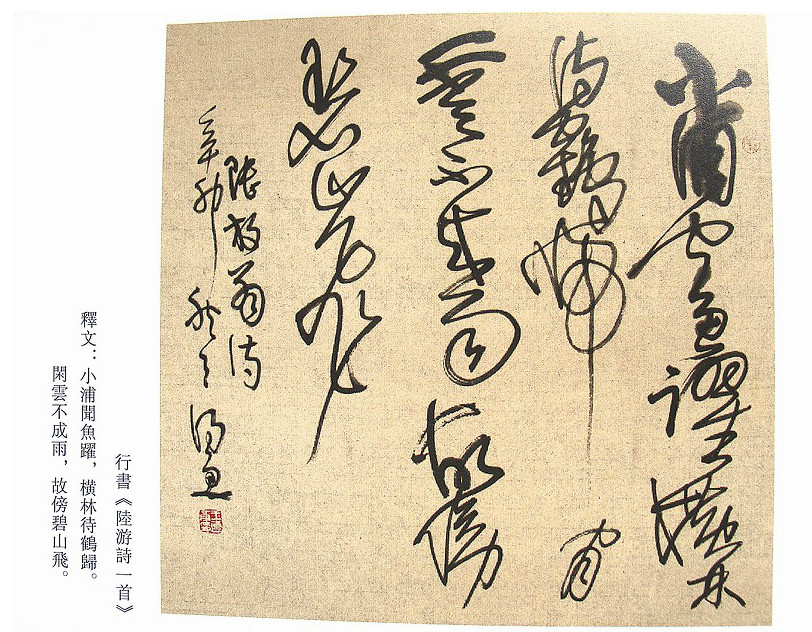 小浦聞魚躍横林
待鶴歸閑
雲不成雨故傍
碧山飛
陸放翁詩
辛卯秋
行書《陸游詩一首》
釋文：小浦聞魚躍，横林待鶴歸。
閑雲不成雨，故傍碧山飛。